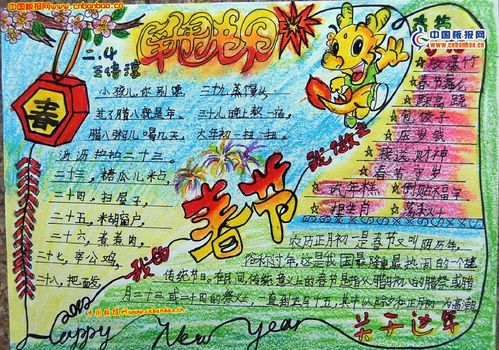 中国板报网
www.cnbanbao.cn
中国板报网
www.cnbanbao.cn
二.4
春
小孩儿你别馋
过了腊八就是年
腊八粥儿喝几天
二十三，糖瓜儿粘
二十四，扫屋子
二十五，
二十六，煮煮肉
二十七，宰公鸡，
二十八，把面
三十儿晚上熬一宿
大年初一扭一扭
☆放爆竹
☆春节
☆踩高跷
☆包饺子
☆压岁钱
☆接送财神
☆春节守岁
☆吃年糕
☆倒贴福字
我的春节我做主
农历正月初一是春节又叫阴历年，
俗称过年，这是我国最隆重最热闹的一个
传统节日。在民间，传统意义上的春节是指从腊月初八的腊祭或腊
月二十三或二十四的祭灶，一直到正月十五，其中以除夕和正月初一为高潮
2012
Happy New Year
中国板报网www.cnbanbao.cn
关于过年